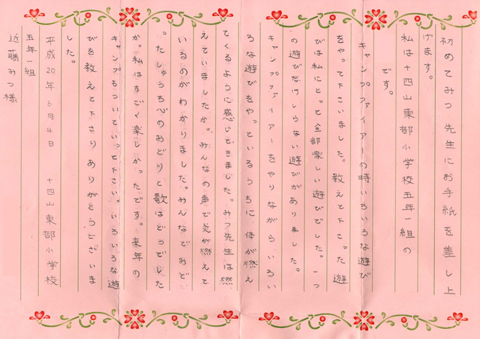 初めてみつ先生にお手紙を差し上
げます。
私は十四山東部小学校五年一組の
です。
キャンプファイアーの時いろいろな遊び
をやって下さいました。教えて下さった遊
びは私にとって全部楽しい遊びでした。一つ
の遊びだけしらない遊びがありました。
キャンプファイアーをやりながらいろい
ろな遊びをやっているうちに体が燃え
てくるように感じてきました。みつ先生は燃
えていましたか。みんなの声で火が燃えて
いるのがわかりました。みんなでおど
ったしゅうち心のおどりと歌はどうでした
か。私はすごく楽しかったです。来年の
キャンプもついていって下さい。いろいろな遊
びを教えて下さりありがとうございま
した。
平成20年6月4日 十四山東部小学校
五年一組
近藤みつ様